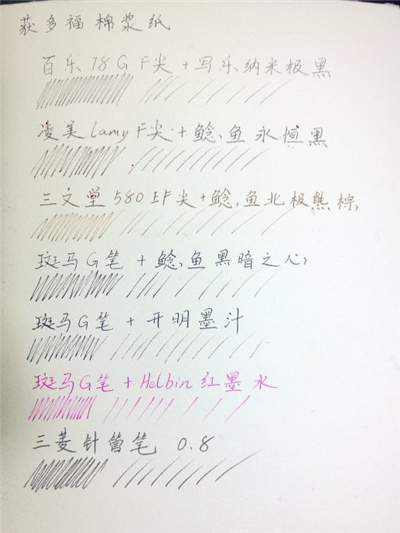 获多福棉浆纸
百乐78G F尖+写乐纳米极黑
凌美lamy F尖+鲶鱼永恒黑
三文堂580 EF尖+鲶鱼北极熊棕
斑马G笔+鲶鱼黑暗之心
斑马G笔+开明墨汁
斑马G笔+Helbin红墨水
三菱针管笔 0.8